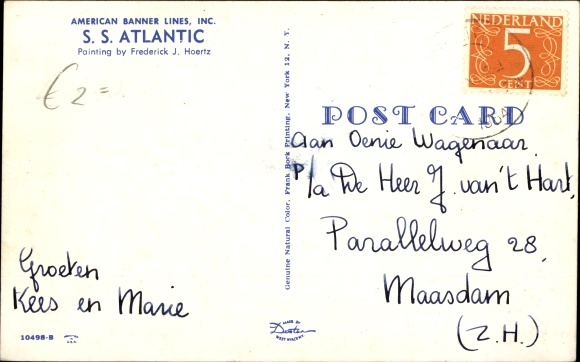 AMERICAN BANNER LINES, INC.
S. S. ATLANTIC
Painting by Frederick J. Hoertz
€ 2 =
NEDERLAND
5
CENT
POST CARD
Genuine Natural Color, Frank Bock Printing, New York 12, N. Y.
Aan Oenie Wagenaar
P/a De Heer J. van 't Hart,
Parallelweg 28,
Maasdam
(Z.H.)
Groeten
Kees en Marie
10498-B
MADE BY
Dexter
WEST NYACK NY